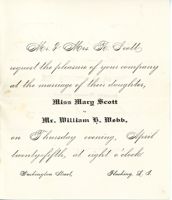 Mr. & Mrs. R. Scott
request the pleasure of your company
at the marriage of their daughter,
Miss Mary Scott
to
Mr. William H. Webb,
on Thursday evening, April
twenty-fifth, at eight o'clock.
Washington Street, Flushing, L. I.